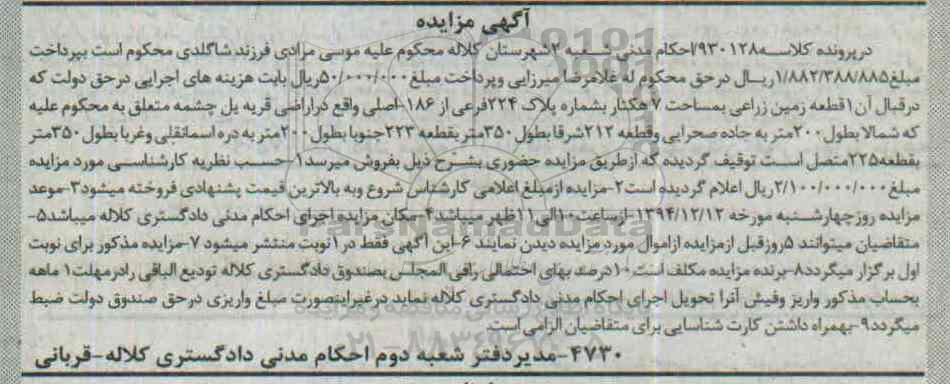 آگهی مزایده
درپرونده کلاسه۹۳۰۱۲۸/احکام مدنی شعبه ۲شهرستان کلاله محکوم علیه موسی مرادی فرزند شاگلدی محکوم است بپرداخت
مبلغ۱/۸۸۲/۳۸۸/۸۸۵ریال درحق محکوم له غلامرضا میرزایی وپرداخت مبلغ۵۰/۰۰۰/۰۰۰ریال بابت هزینه های اجرایی درحق دولت که
درقبال آن۱قطعه زمین زراعی بمساحت ۷هکتار بشماره پلاک ۲۲۴فرعی از ۱۸۶-اصلی واقع دراراضی قریه یل چشمه متعلق به محکوم علیه
که شمالا بطول۲۰۰متر به جاده صحرایی وقطعه ۲۱۲شرقا بطول۳۵۰متر بقطعه ۲۲۳جنوبا بطول۲۰۰متر به دره اسمانقلی وغربا بطول۳۵۰متر
بقطعه۲۲۵متصل است توقیف گردیده که ازطریق مزایده حضوری بشرح ذیل بفروش میرسد۱-حسب نظریه کارشناسی مورد مزایده
مبلغ۲/۱۰۰/۰۰۰/۰۰۰ریال اعلام گردیده است۲-مزایده ازمبلغ اعلامی کارشناس شروع وبه بالاترین قیمت پشنهادی فروخته میشود۳-موعد
مزایده روزچهارشنبه مورخه ۱۳۹۴/۱۲/۱۲-ازساعت۱۰الی۱۱ظهر میباشد۴-مکان مزایده اجرای احکام مدنی دادگستری کلاله میباشد۵-
متقاضیان میتوانند ۵روزقبل ازمزایده ازاموال مورد مزایده دیدن نمایند ۶-این آگهی فقط در۱نوبت منتشر میشود ۷-مزایده مذکور برای نوبت
اول برگزار میگردد۸-برنده مزایده مکلف است۱۰درصد بهای احتمالی رافی المجلس بصندوق دادگستری کلاله تودیع الباقی رادرمهلت۱ ماهه
بحساب مذکور واریز وفیش آنرا تحویل اجرای احکام مدنی دادگستری کلاله نماید درغیراینصورت مبلغ واریزی درحق صندوق دولت ضبط
میگردد۹-بهمراه داشتن کارت شناسایی برای متقاضیان الزامی است.
۴۷۳۰-مدیردفتر شعبه دوم احکام مدنی دادگستری کلاله-قربانی